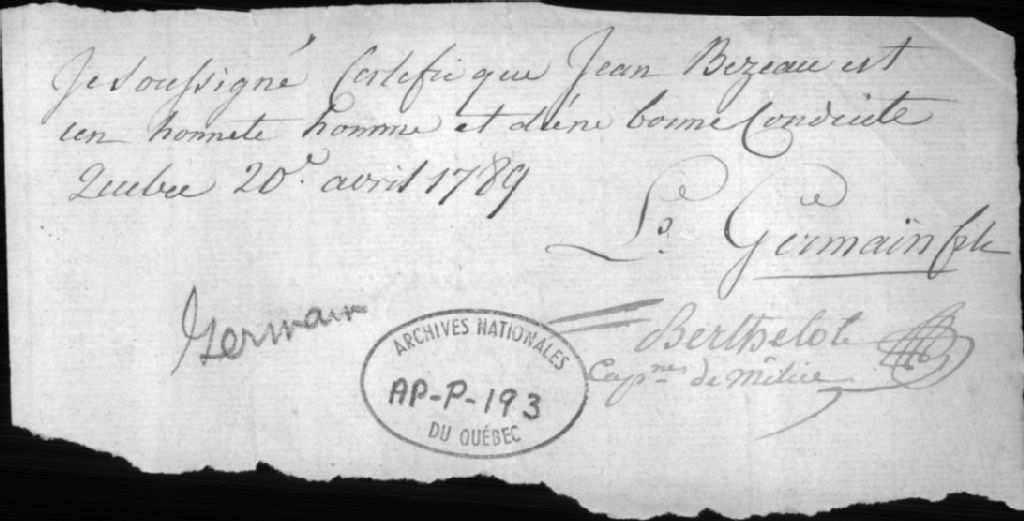 Je Soussigné Certifie que Jean Bezeau est
un honnete homme et d'éne bonne Conduite
Quebec 20e. avril 1789
Ls. Germain fils
Germain
Berthelot
Capnes de Milice
ARCHIVES NATIONALES
AP-P-193
DU QUÉBEC